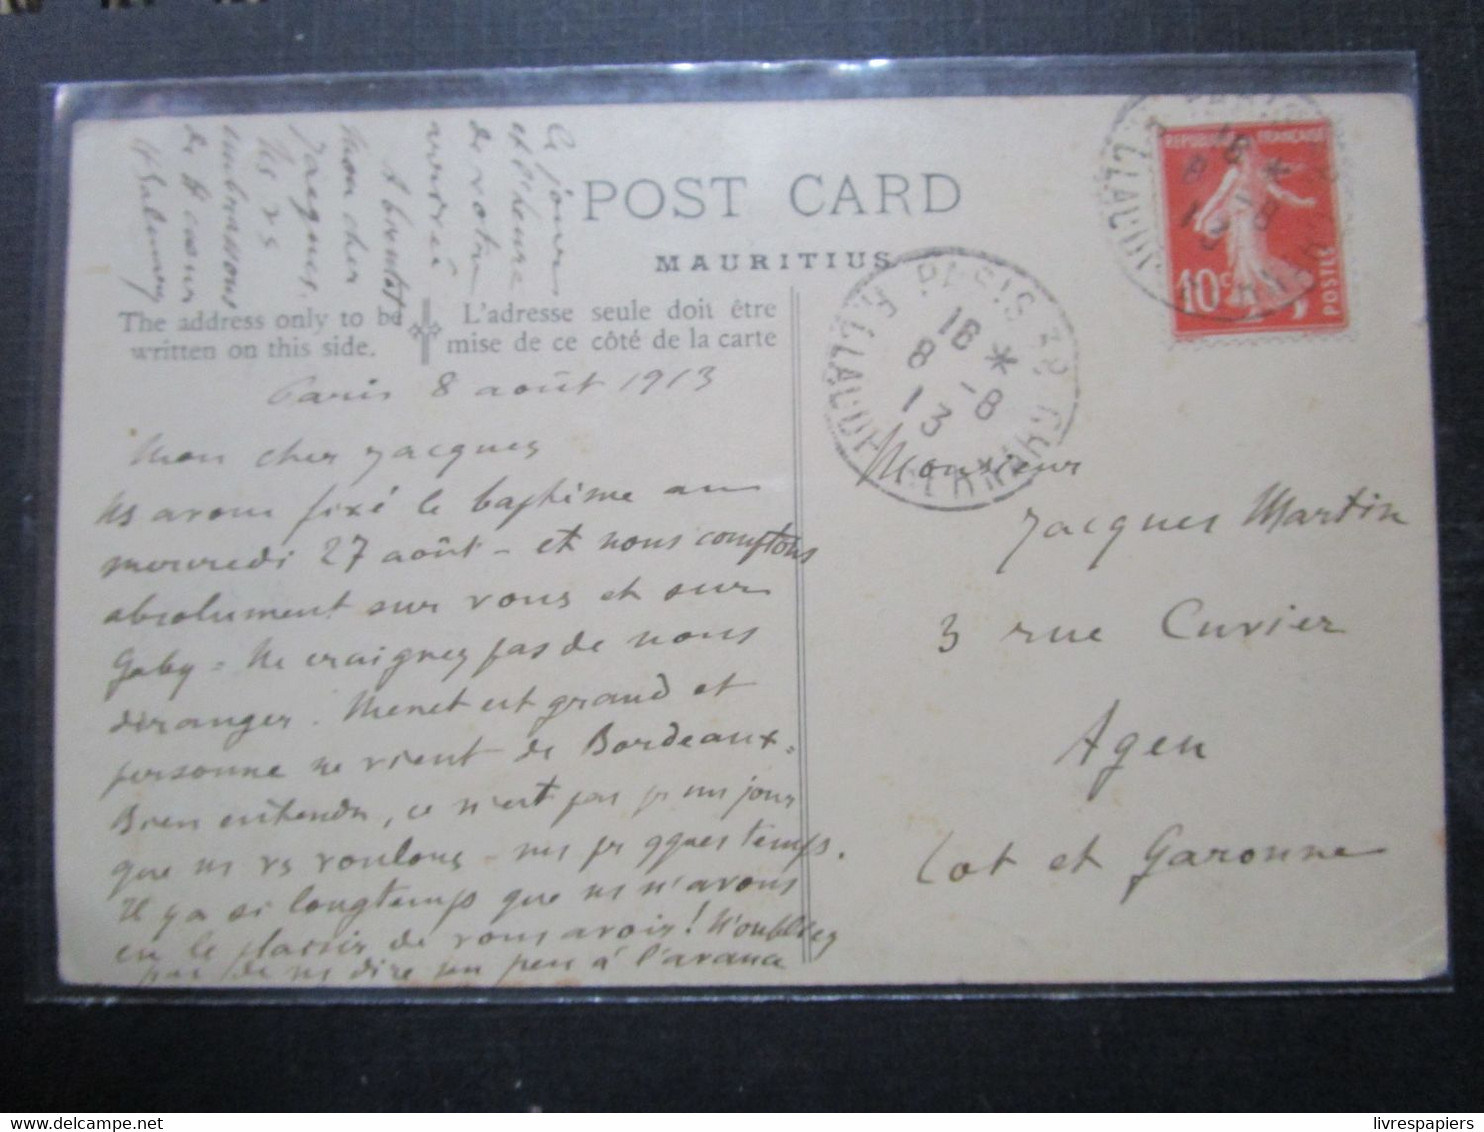 POST CARD
MAURITIUS
The address only to be
written on this side.
L'adresse seule doit être
mise de ce côté de la carte
REPUBLIQUE FRANÇAISE
10c
POSTES
PARIS
18 *
8 -8
13
Paris 8 août 1913
Mon cher Jacques
Ns avons fixé le baptême au
mercredi 27 août - et nous comptons
absolument sur vous et sur
Gaby = Ne craignez pas de nous
déranger. Menet est grand et
personne ne vient de Bordeaux.
Bien entendu, ce n'est pas pr un jour
que ns vs voulons - mais pr qques temps.
Il y a si longtemps que ns n'avons
eu le plaisir de vous avoir! N'oubliez
pas de ns dire un peu à l'avance
le jour
et l'heure
de votre
arrivée
A bientôt
mon cher
Jacques.
Ns vs
embrassons
de tt cœur
Monsieur
Jacques Martin
3 rue Cuvier
Agen
Lot et Garonne
livrespapiers
www.delcampe.net